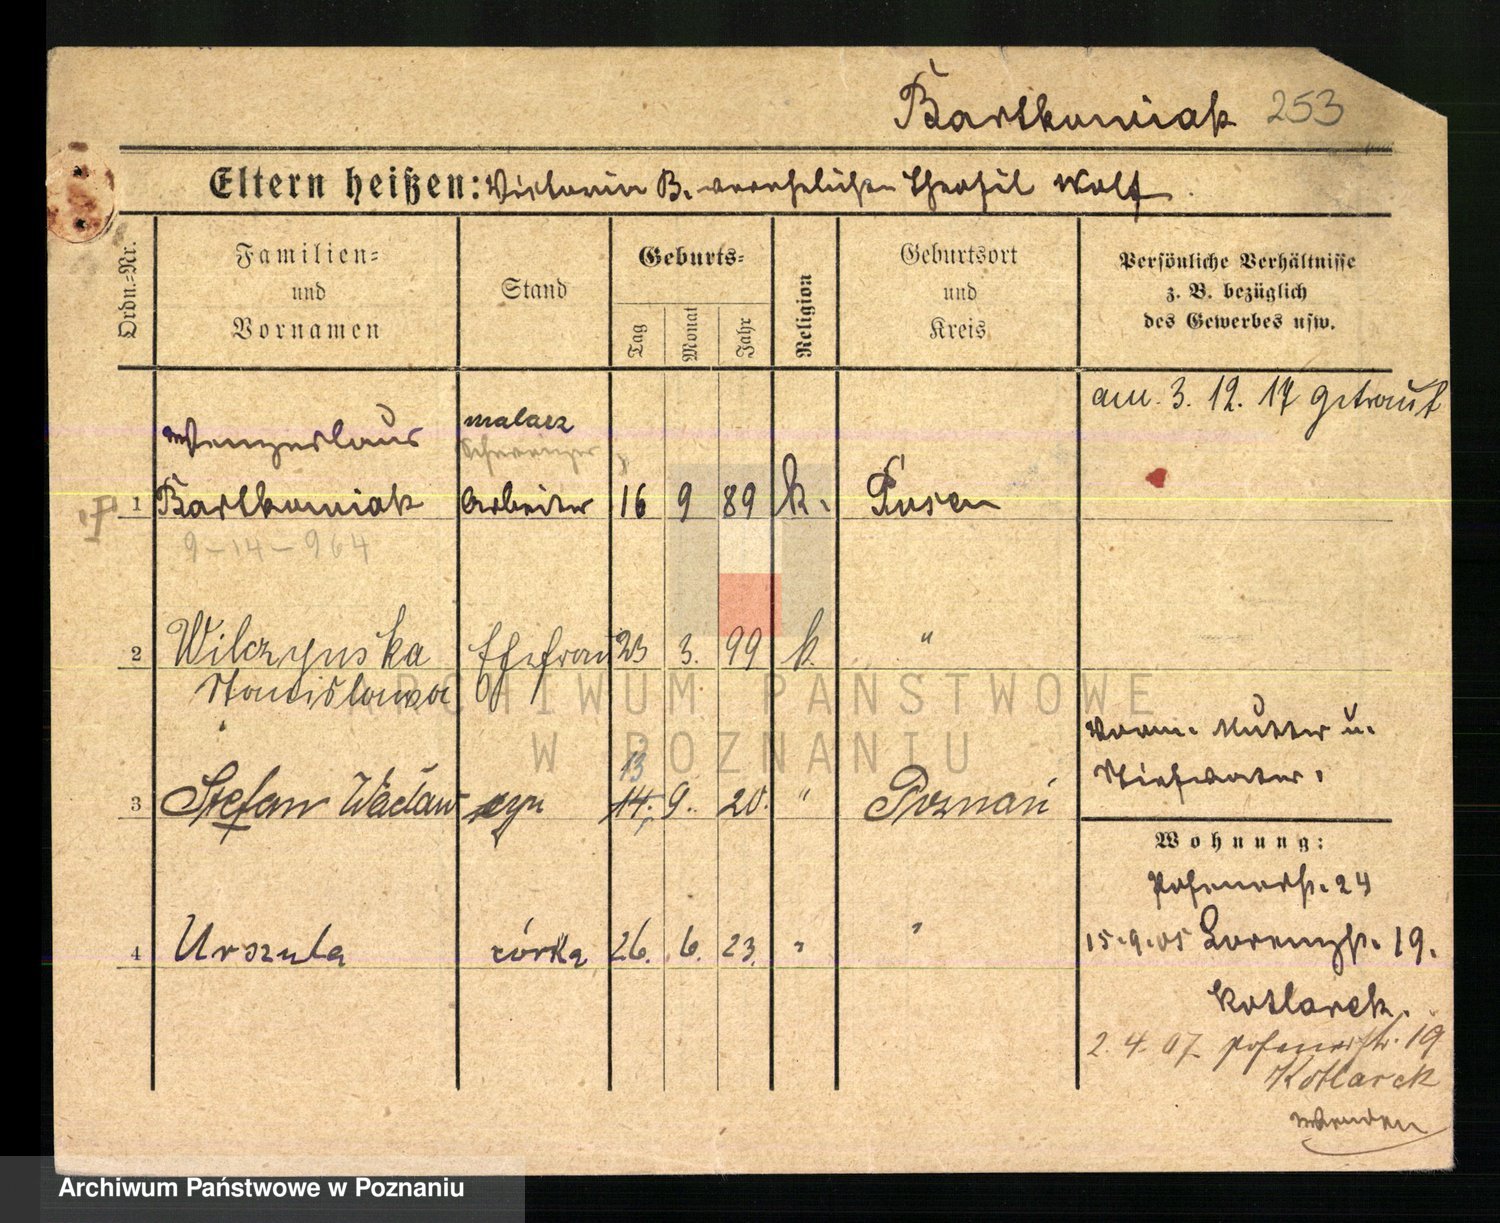 Bartkowiak 253
Eltern heißen: Victoria B. verehelichte Theofil Wolf
Ordn.-Nr.
Familien-
und
Vornamen
Stand
Geburts-
Tag
Monat
Jahr
Religion
Geburtsort
und
Kreis
Persönliche Verhältnisse
z. B. bezüglich
des Gewerbes usw.
am 3. 12. 17 getraut
Wenzeslaus malarz
1 Bartkowiak Arbeiter 16 9 89 k. Posen
9-14-964
2 Wilczynska Ehefrau 23 3. 99 k. "
Stanislawa
Vorm. Mutter u.
Stiefvater.
13
3 Stefan Wacław syn 14. 9. 20. " Poznań
Wohnung:
Posenerstr. 24
4 Urszula córka 26. 6. 23. " "
15.9.05 Lorenzstr. 19.
Kotlarek.
2.4.07 Posenerstr. 19
Kotlarek
wenden
ARCHIWUM PAŃSTWOWE
W POZNANIU
Archiwum Państwowe w Poznaniu